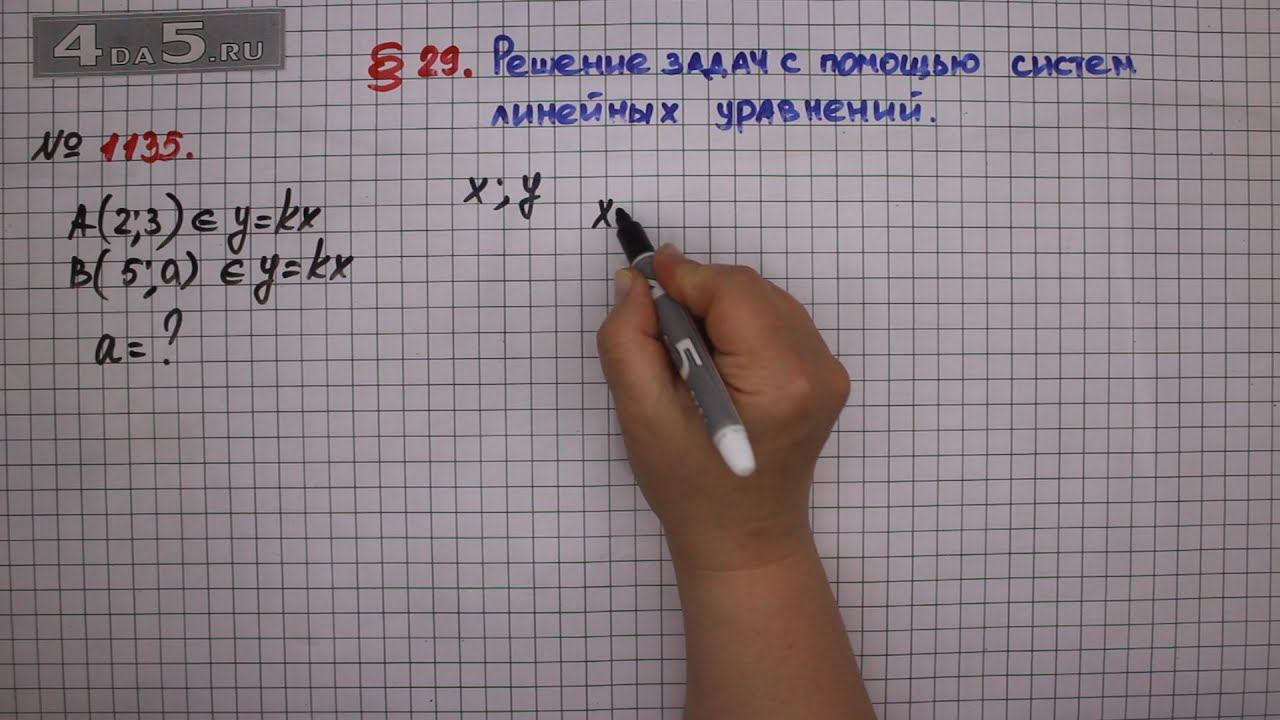 4DA5.RU
§ 29. Решение задач с помощью систем
линейных уравнений.
№ 1135.
A(2;3) ∈ y=kx
B(5;a) ∈ y=kx
a=?
x ; y
x
5